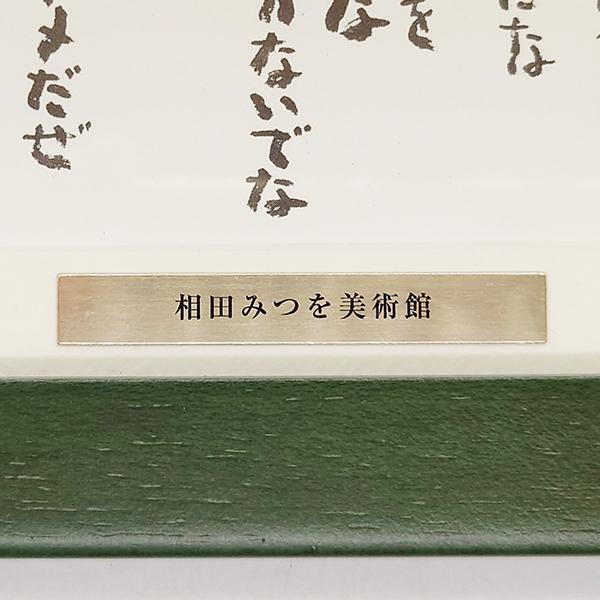 はな
を
な
ないでな
だぜ
相田みつを美術館